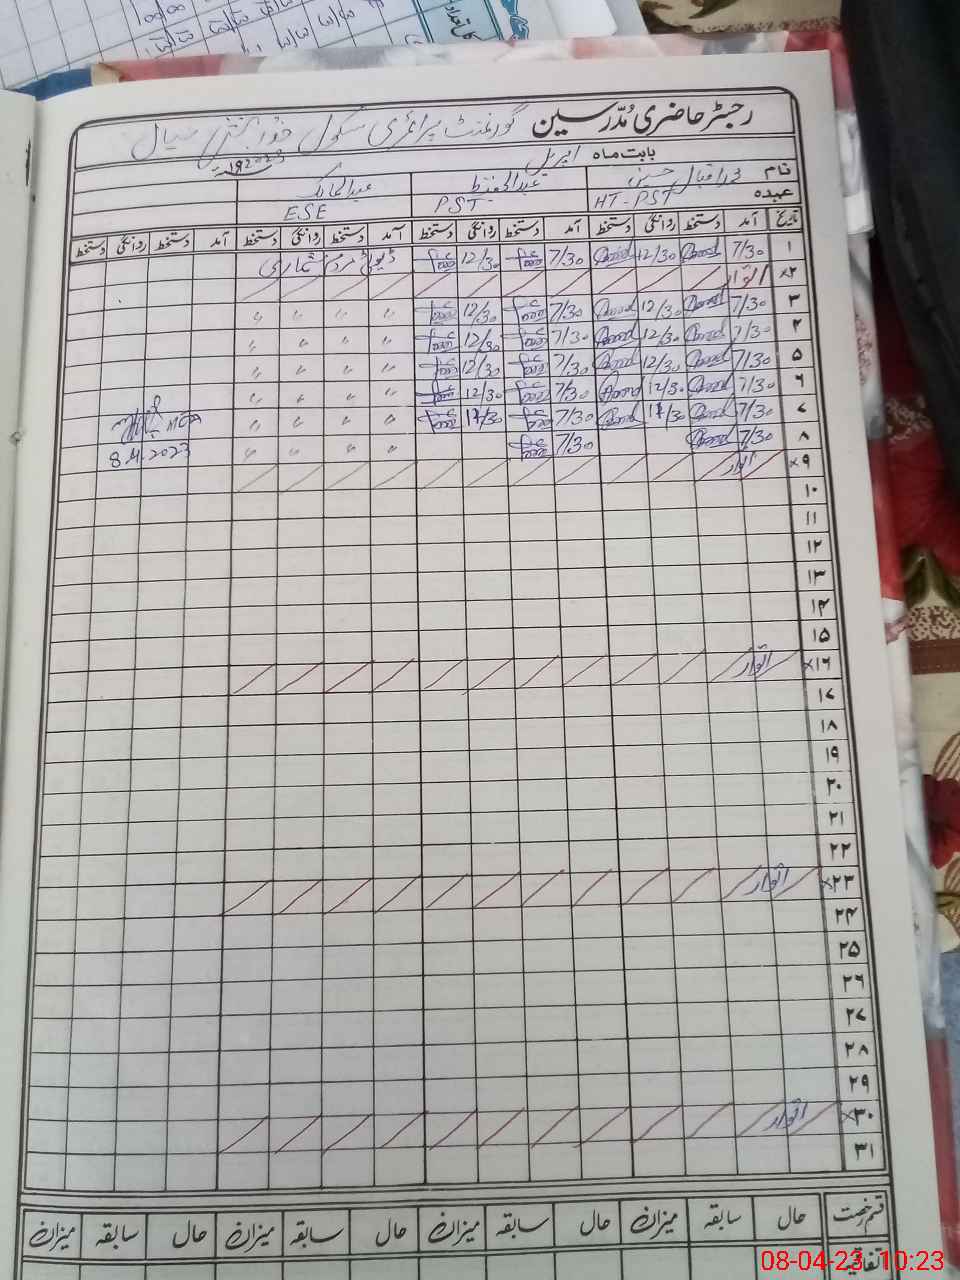 رجسٹر حاضری مُدّرسین گورنمنٹ پرائمری سکول
بابت ماہ اپریل 2023
نام محمد اقبال حسین عبدالحفیظ عبدالمالک
عہدہ HT-PST PST ESE
تاریخ آمد دستخط روانگی دستخط آمد دستخط روانگی دستخط آمد دستخط روانگی دستخط آمد دستخط روانگی دستخط
۱ 7/30 12/30 7/30 12/30 ڈیوٹی مردم شماری
×۲ اتوار
۳ 7/30 12/30 7/30 12/30 〃 〃 〃 〃
۴ 7/30 12/30 7/30 12/30 〃 〃 〃 〃
۵ 7/30 12/30 7/30 12/30 〃 〃 〃 〃
۶ 7/30 12/30 7/30 12/30 〃 〃 〃 〃
۷ 7/30 12/30 7/30 12/30 〃 〃 〃 〃 MEA
۸ 7/30 7/30 〃 〃 〃 〃 8.4.2023
×۹ اتوار
۱۰
۱۱
۱۲
۱۳
۱۴
۱۵
×۱۶ اتوار
۱۷
۱۸
۱۹
۲۰
۲۱
۲۲
×۲۳ اتوار
۲۴
۲۵
۲۶
۲۷
۲۸
۲۹
×۳۰ اتوار
۳۱
قسم رخصت حال سابقہ میزان حال سابقہ میزان حال سابقہ میزان حال سابقہ میزان
اتفاقیہ
08-04-23 10:23